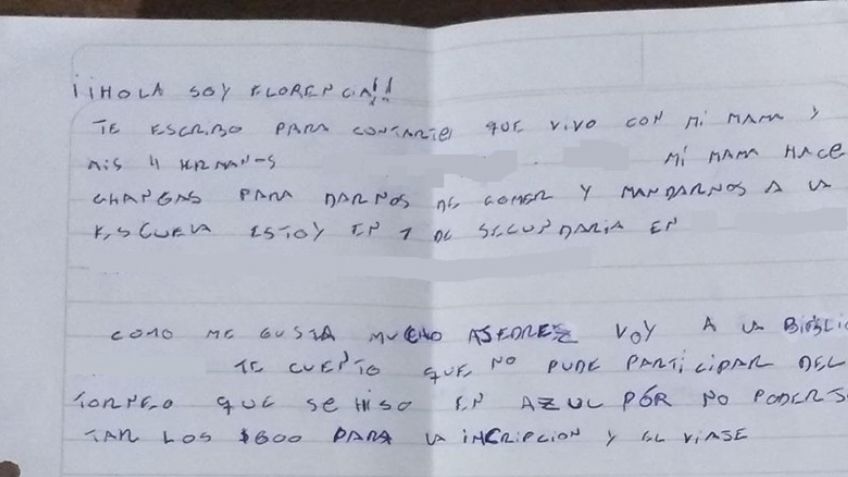 ¡¡HOLA SOY FLORENCIA!!
TE ESCRIBO PARA CONTARTE QUE VIVO CON MI MAMA Y
MIS 4 HERMANOS MI MAMA HACE
CHANGAS PARA DARNOS DE COMER Y MANDARNOS A LA
ESCUELA ESTOY EN 1 DE SECUNDARIA EN
COMO ME GUSTA MUCHO ASEDREZ VOY A LA BIBLIO
TE CUENTO QUE NO PUDE PARTICIPAR DEL
TORNEO QUE SE HISO EN AZUL POR NO PODER
TAR LOS $600 PARA LA INCRIPCION Y EL VIASE